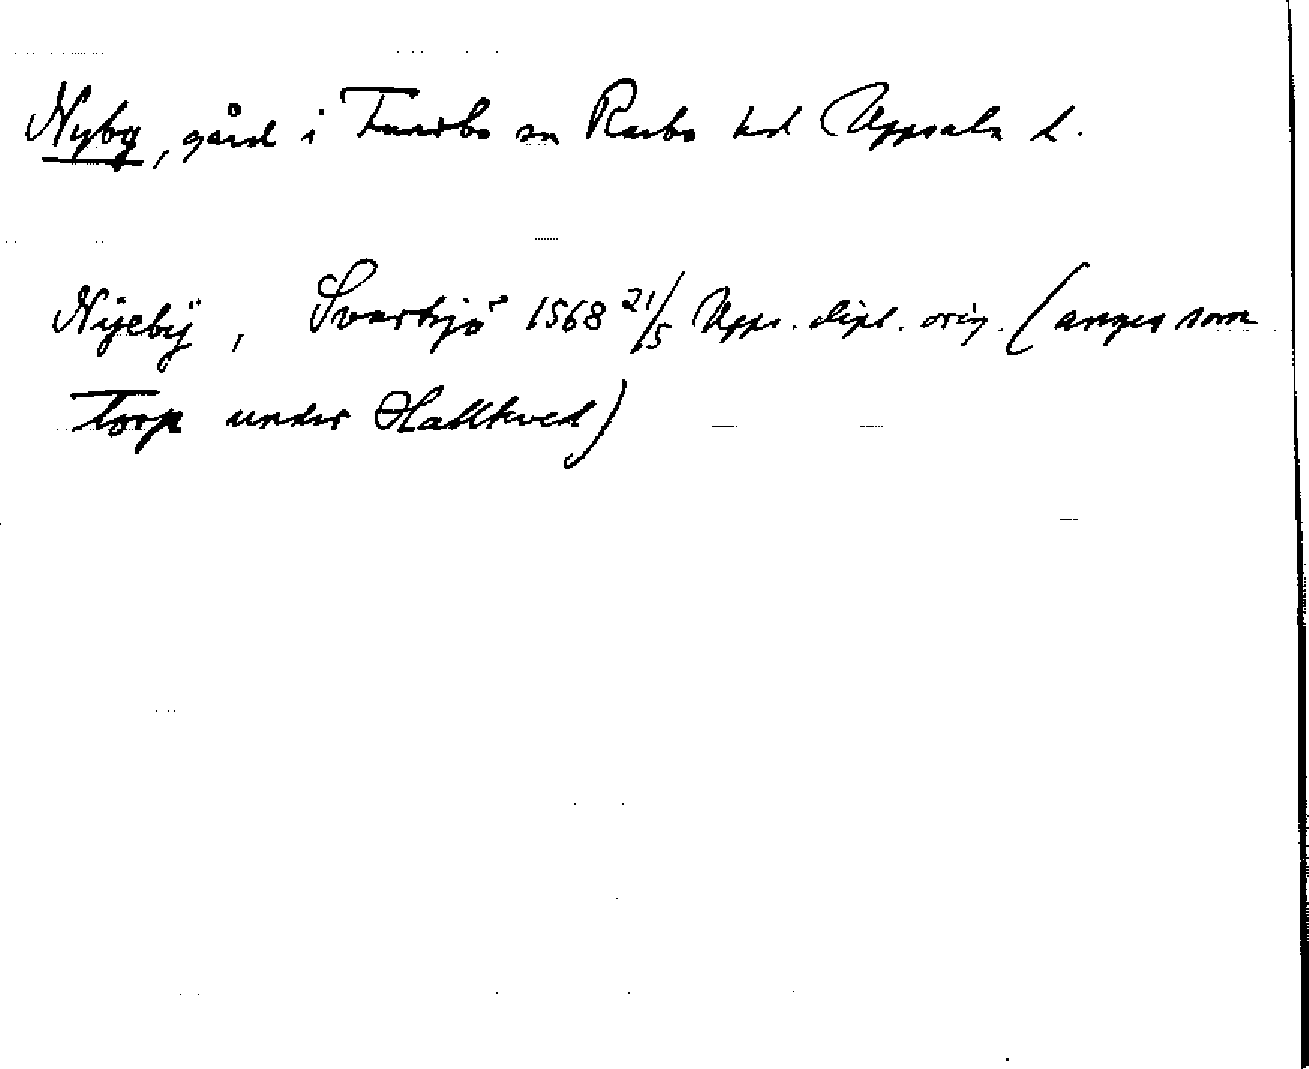 Nyby, gård i Funbo sn Rasbo hd Uppsala l.
Nÿebÿ, Svartsjö 1568 21/5 Upps. dipl. orig. (anges som
Torp under Hallkved)